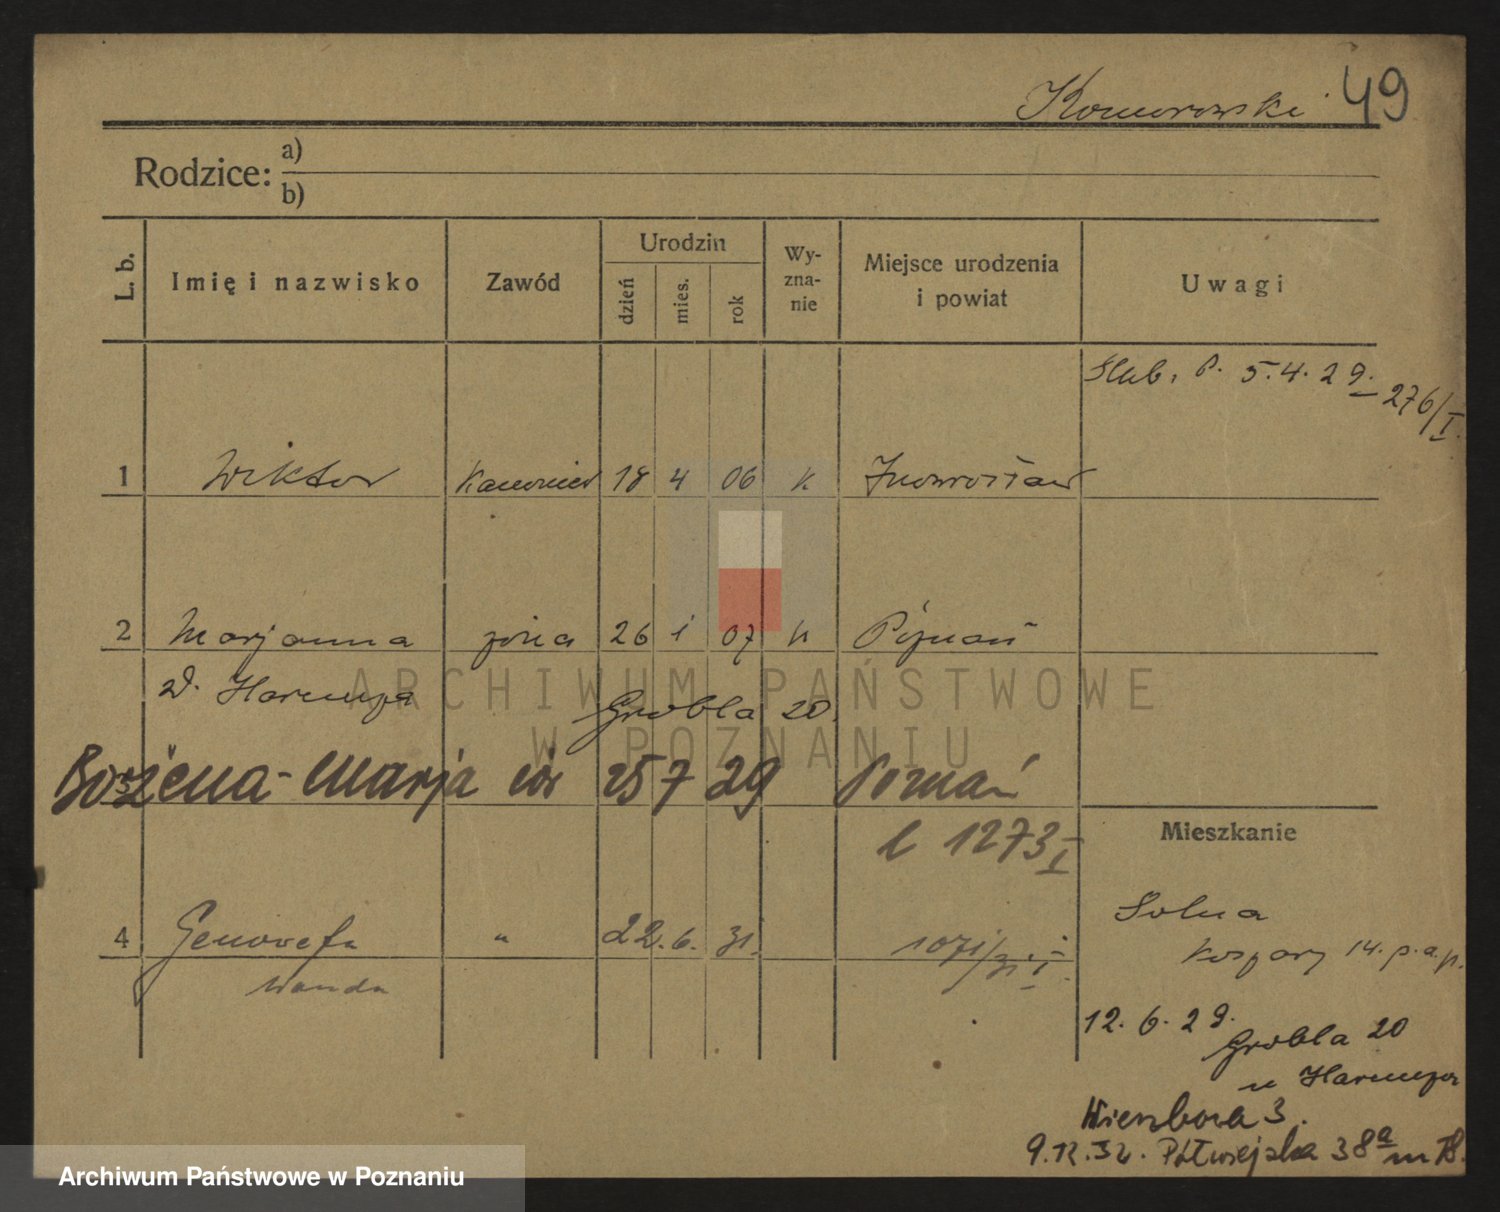 Komorowski 49
Rodzice: a)
b)
L. b. Imię i nazwisko Zawód Urodzin dzień mies. rok Wy-zna-nie Miejsce urodzenia i powiat Uwagi
Ślub. P. 5.4.29. 276/I.
1 Wiktor 18 4 06 k Inowrocław
2 Marjanna żona 26 1 07 k Poznań
Grobla 20.
3 Bożena-Marja cór 25 7 29 Poznań
l 1273 I
Mieszkanie
Solna
4 Genowefa " 22. 6. 31. 1071/31 I.
Wanda
14. p.
12. 6. 29. Grobla 20
u
Wierzbowa 3.
Półwiejska 38a m
ARCHIWUM PAŃSTWOWE
W POZNANIU
Archiwum Państwowe w Poznaniu